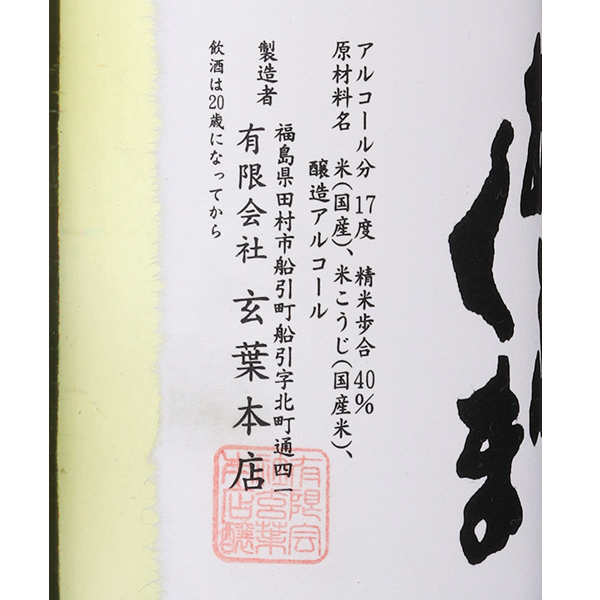 くま
アルコール分 17度 精米歩合 40%
原材料名 米(国産)、米こうじ(国産米)、
醸造アルコール
福島県田村市船引町船引字北町通四一
製造者 有限会社 玄葉本店
飲酒は20歳になってから
有限会
社玄葉
本店醸